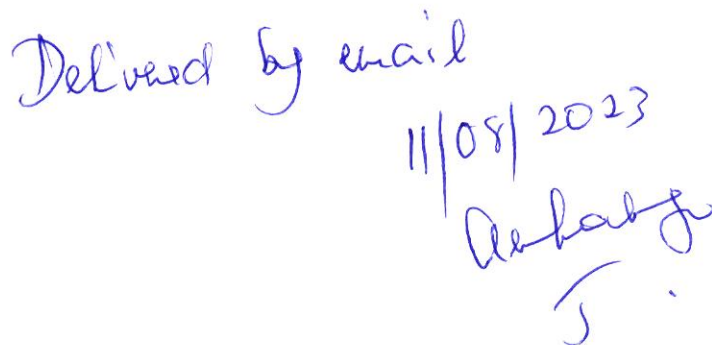 Delivered by email
11/08/2023
J.